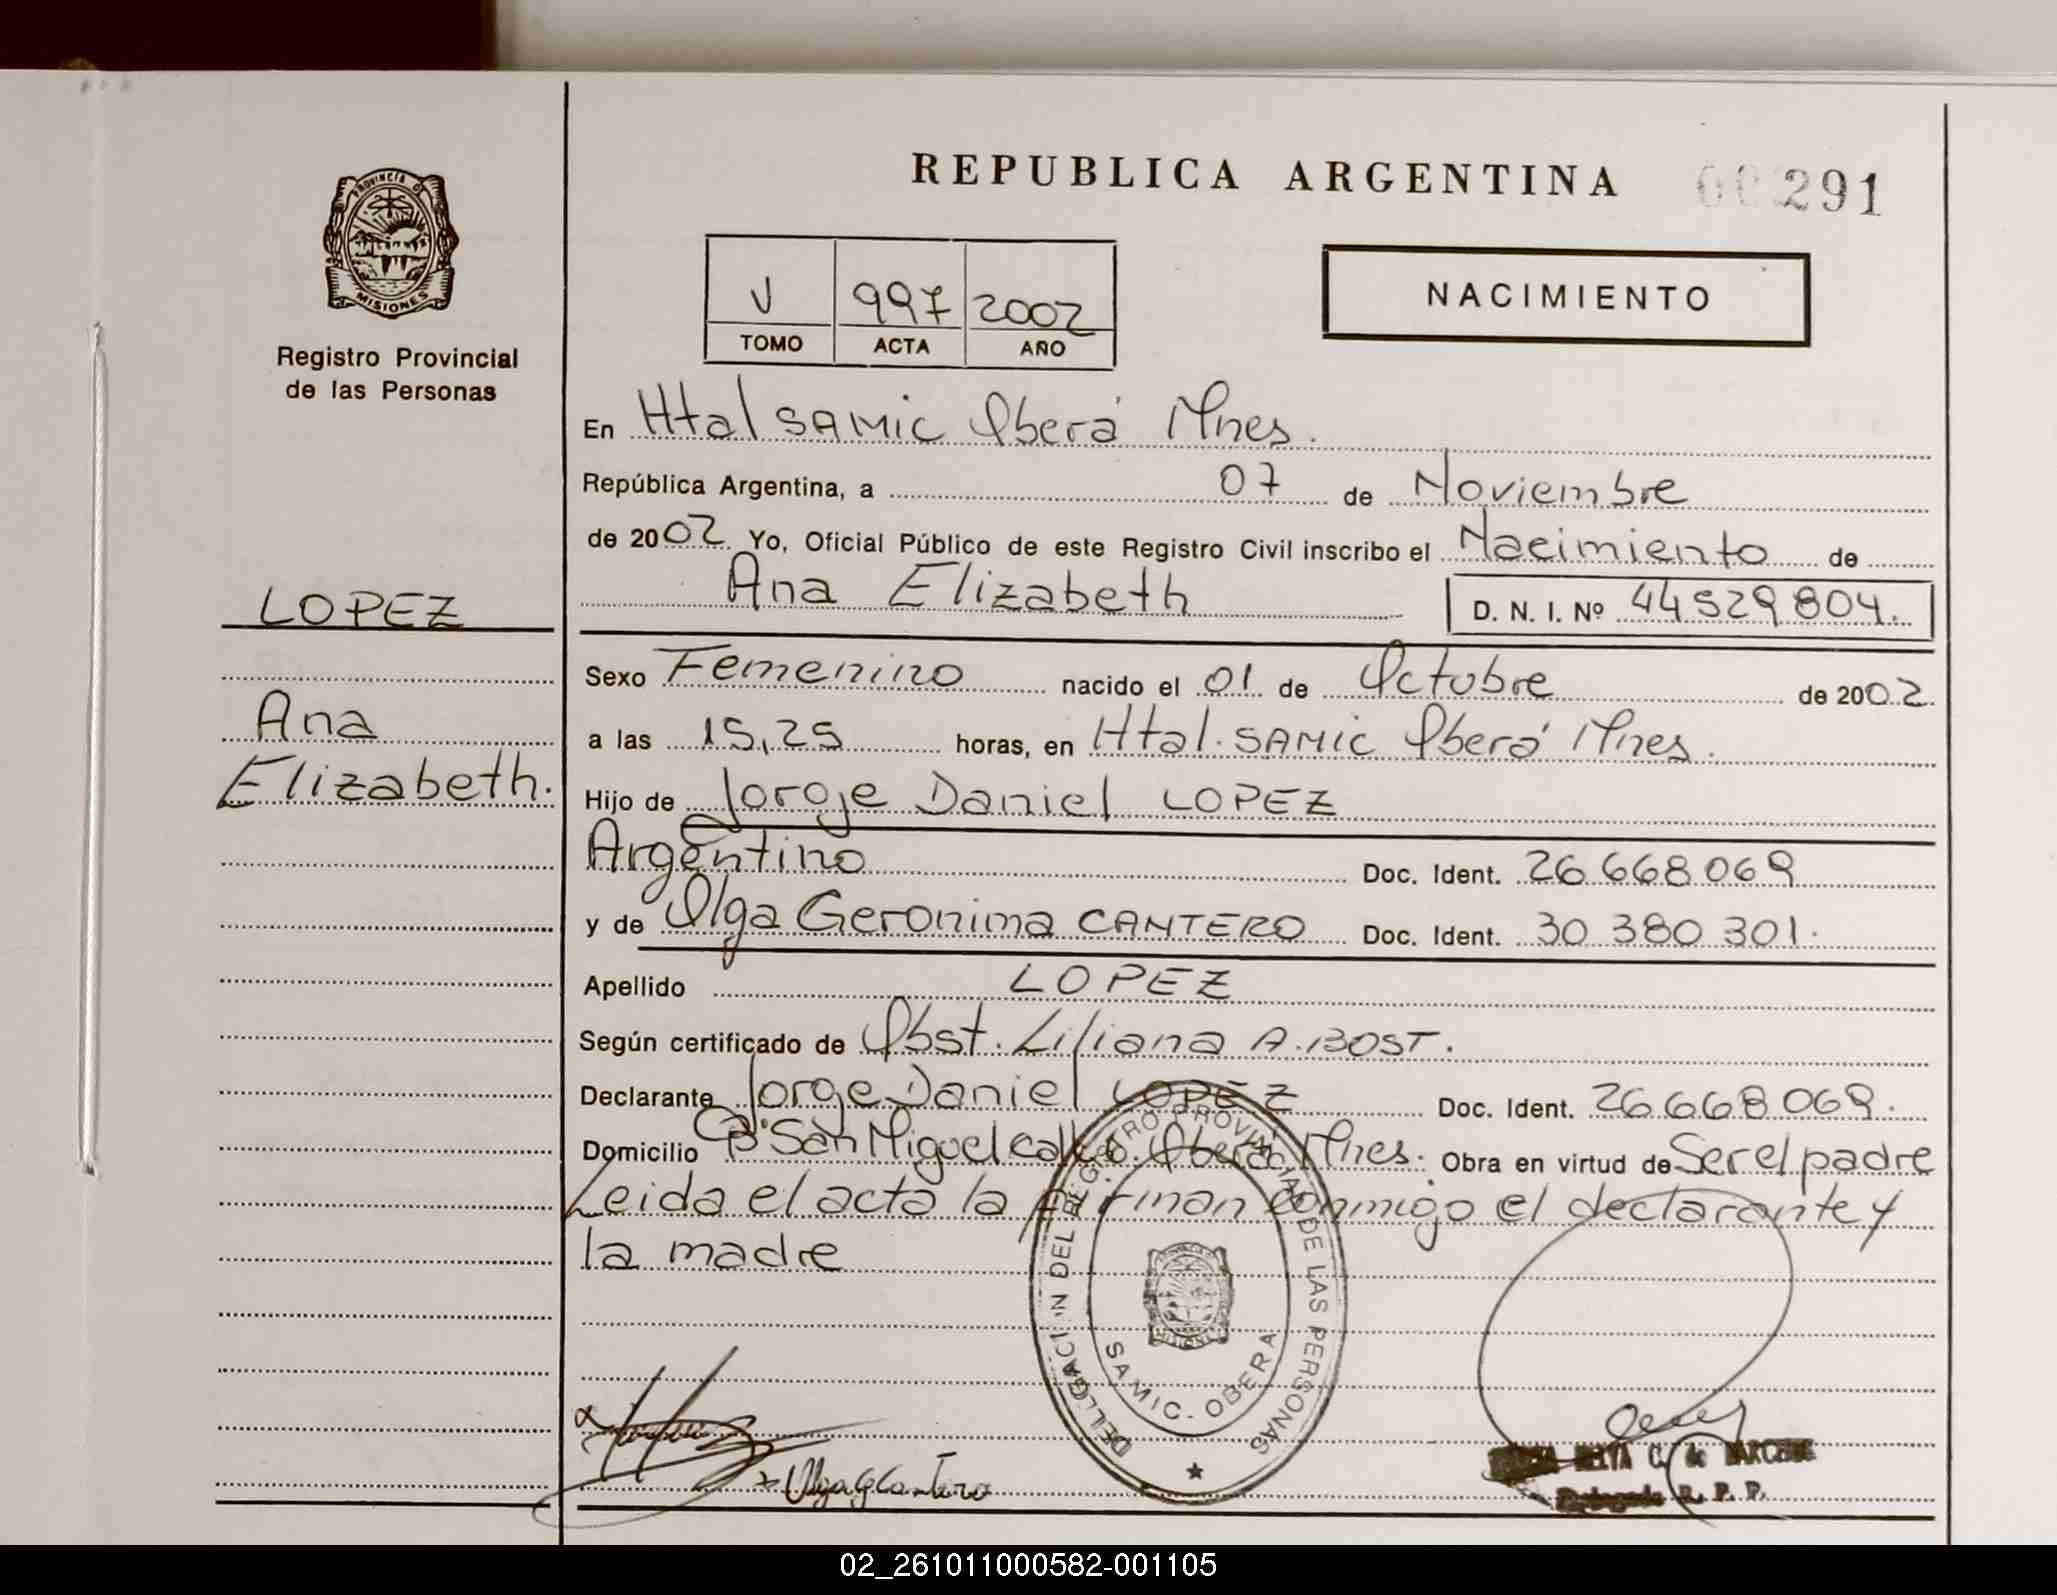 REPUBLICA ARGENTINA
00291
PROVINCIA DE
MISIONES
Registro Provincial
de las Personas
V 997 2002
TOMO ACTA AÑO
NACIMIENTO
En Htal SAMIC Oberá Mnes.
República Argentina, a 07 de Noviembre
de 2002 Yo, Oficial Público de este Registro Civil inscribo el Nacimiento de
Ana Elizabeth D. N. I. Nº 44529804.
LOPEZ
Ana
Elizabeth.
Sexo Femenino nacido el 01 de Octubre de 2002
a las 15,25 horas, en Htal. SAMIC Oberá Mnes.
Hijo de Jorge Daniel LOPEZ
Argentino Doc. Ident. 26 668 069
y de Olga Geronima CANTERO Doc. Ident. 30 380 301.
Apellido LOPEZ
Según certificado de Obst. Liliana A. BOST.
Declarante Jorge Daniel LOPEZ Doc. Ident. 26668069.
Domicilio Bº San Miguel Oberá Mnes. Obra en virtud de Ser el padre
Leida el acta la firman conmigo el declarante y
la madre
DELEGACION DEL REGISTRO PROVINCIAL DE LAS PERSONAS
SAMIC - OBERA
Olga G Cantero
C. de
R. P. P.
02_261011000582-001105